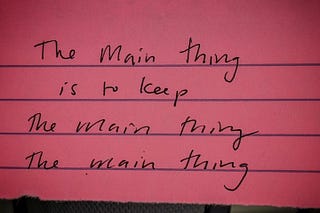 The Main thing
is to keep
The main thing
The main thing